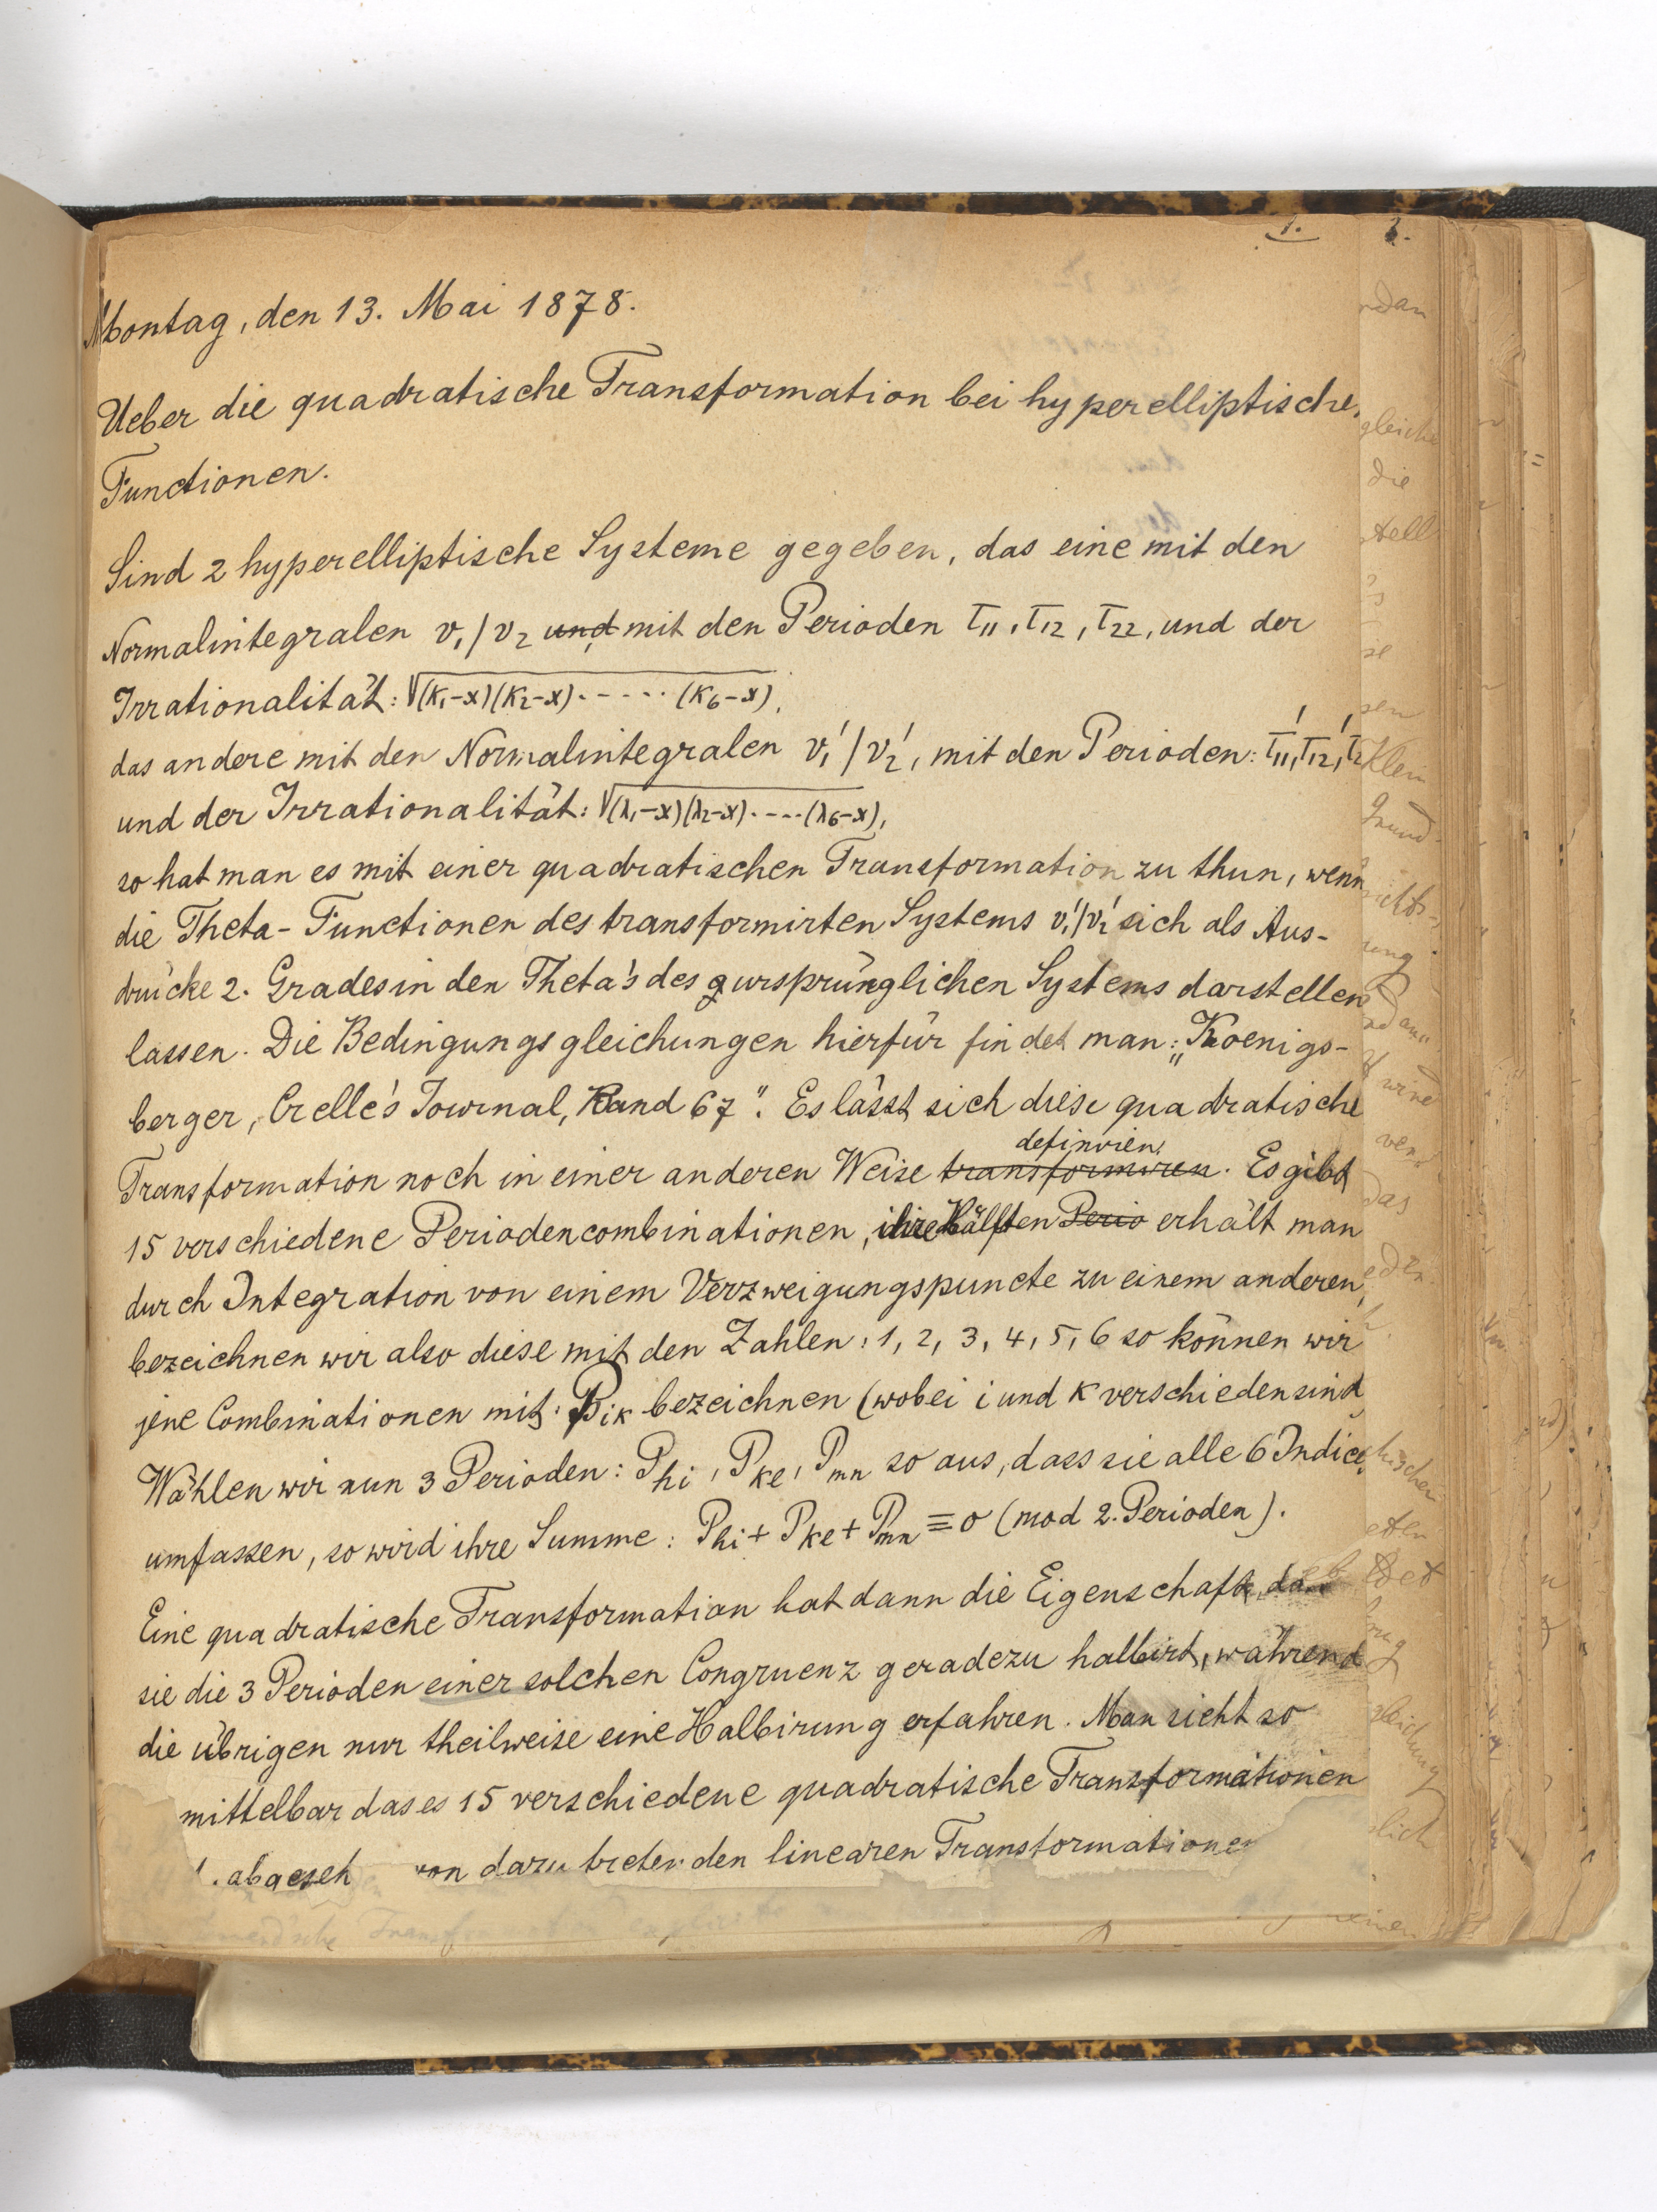 1.
Montag, den 13. Mai 1878.
Ueber die quadratische Transformation bei hyperelliptische
Functionen.
Sind 2 hyperelliptische Systeme gegeben, das eine mit den
Normalintegralen v₁/v₂ und mit den Perioden τ₁₁, τ₁₂, τ₂₂, und der
Irrationalität: √(κ₁-x)(κ₂-x)·----·(κ₆-x),
das andere mit den Normalintegralen v₁'/v₂', mit den Perioden: τ₁₁', τ₁₂', τ₂
und der Irrationalität: √(λ₁-x)(λ₂-x)·---·(λ₆-x),
so hat man es mit einer quadratischen Transformation zu thun, wenn
die Theta-Functionen des transformirten Systems v₁'/v₂' sich als Aus-
drücke 2. Grades in den Theta's des ursprünglichen Systems darstellen
lassen. Die Bedingungsgleichungen hierfür findet man: „Koenigs-
berger, Crelle's Journal, Band 67". Es lässt sich diese quadratische
definiren.
Transformation noch in einer anderen Weise transformiren. Es gibt
15 verschiedene Periodencombinationen, ihre Hälften Perio erhält man
durch Integration von einem Verzweigungspuncte zu einem anderen,
bezeichnen wir also diese mit den Zahlen: 1, 2, 3, 4, 5, 6 so können wir
jene Combinationen mit: Pᵢκ bezeichnen (wobei i und κ verschieden sind
Wählen wir nun 3 Perioden: Phi, Pke, Pmn so aus, dass sie alle 6 Indices
umfassen, so wird ihre Summe: Phi + Pke + Pmn ≡ 0 (mod 2. Perioden).
Eine quadratische Transformation hat dann die Eigenschaft, das
sie die 3 Perioden einer solchen Congruenz geradezu halbirt, während
die übrigen nur theilweise eine Halbirung erfahren. Man sieht so
mittelbar das es 15 verschiedene quadratische Transformationen
abgeseh von dazu tretenden linearen Transformationen